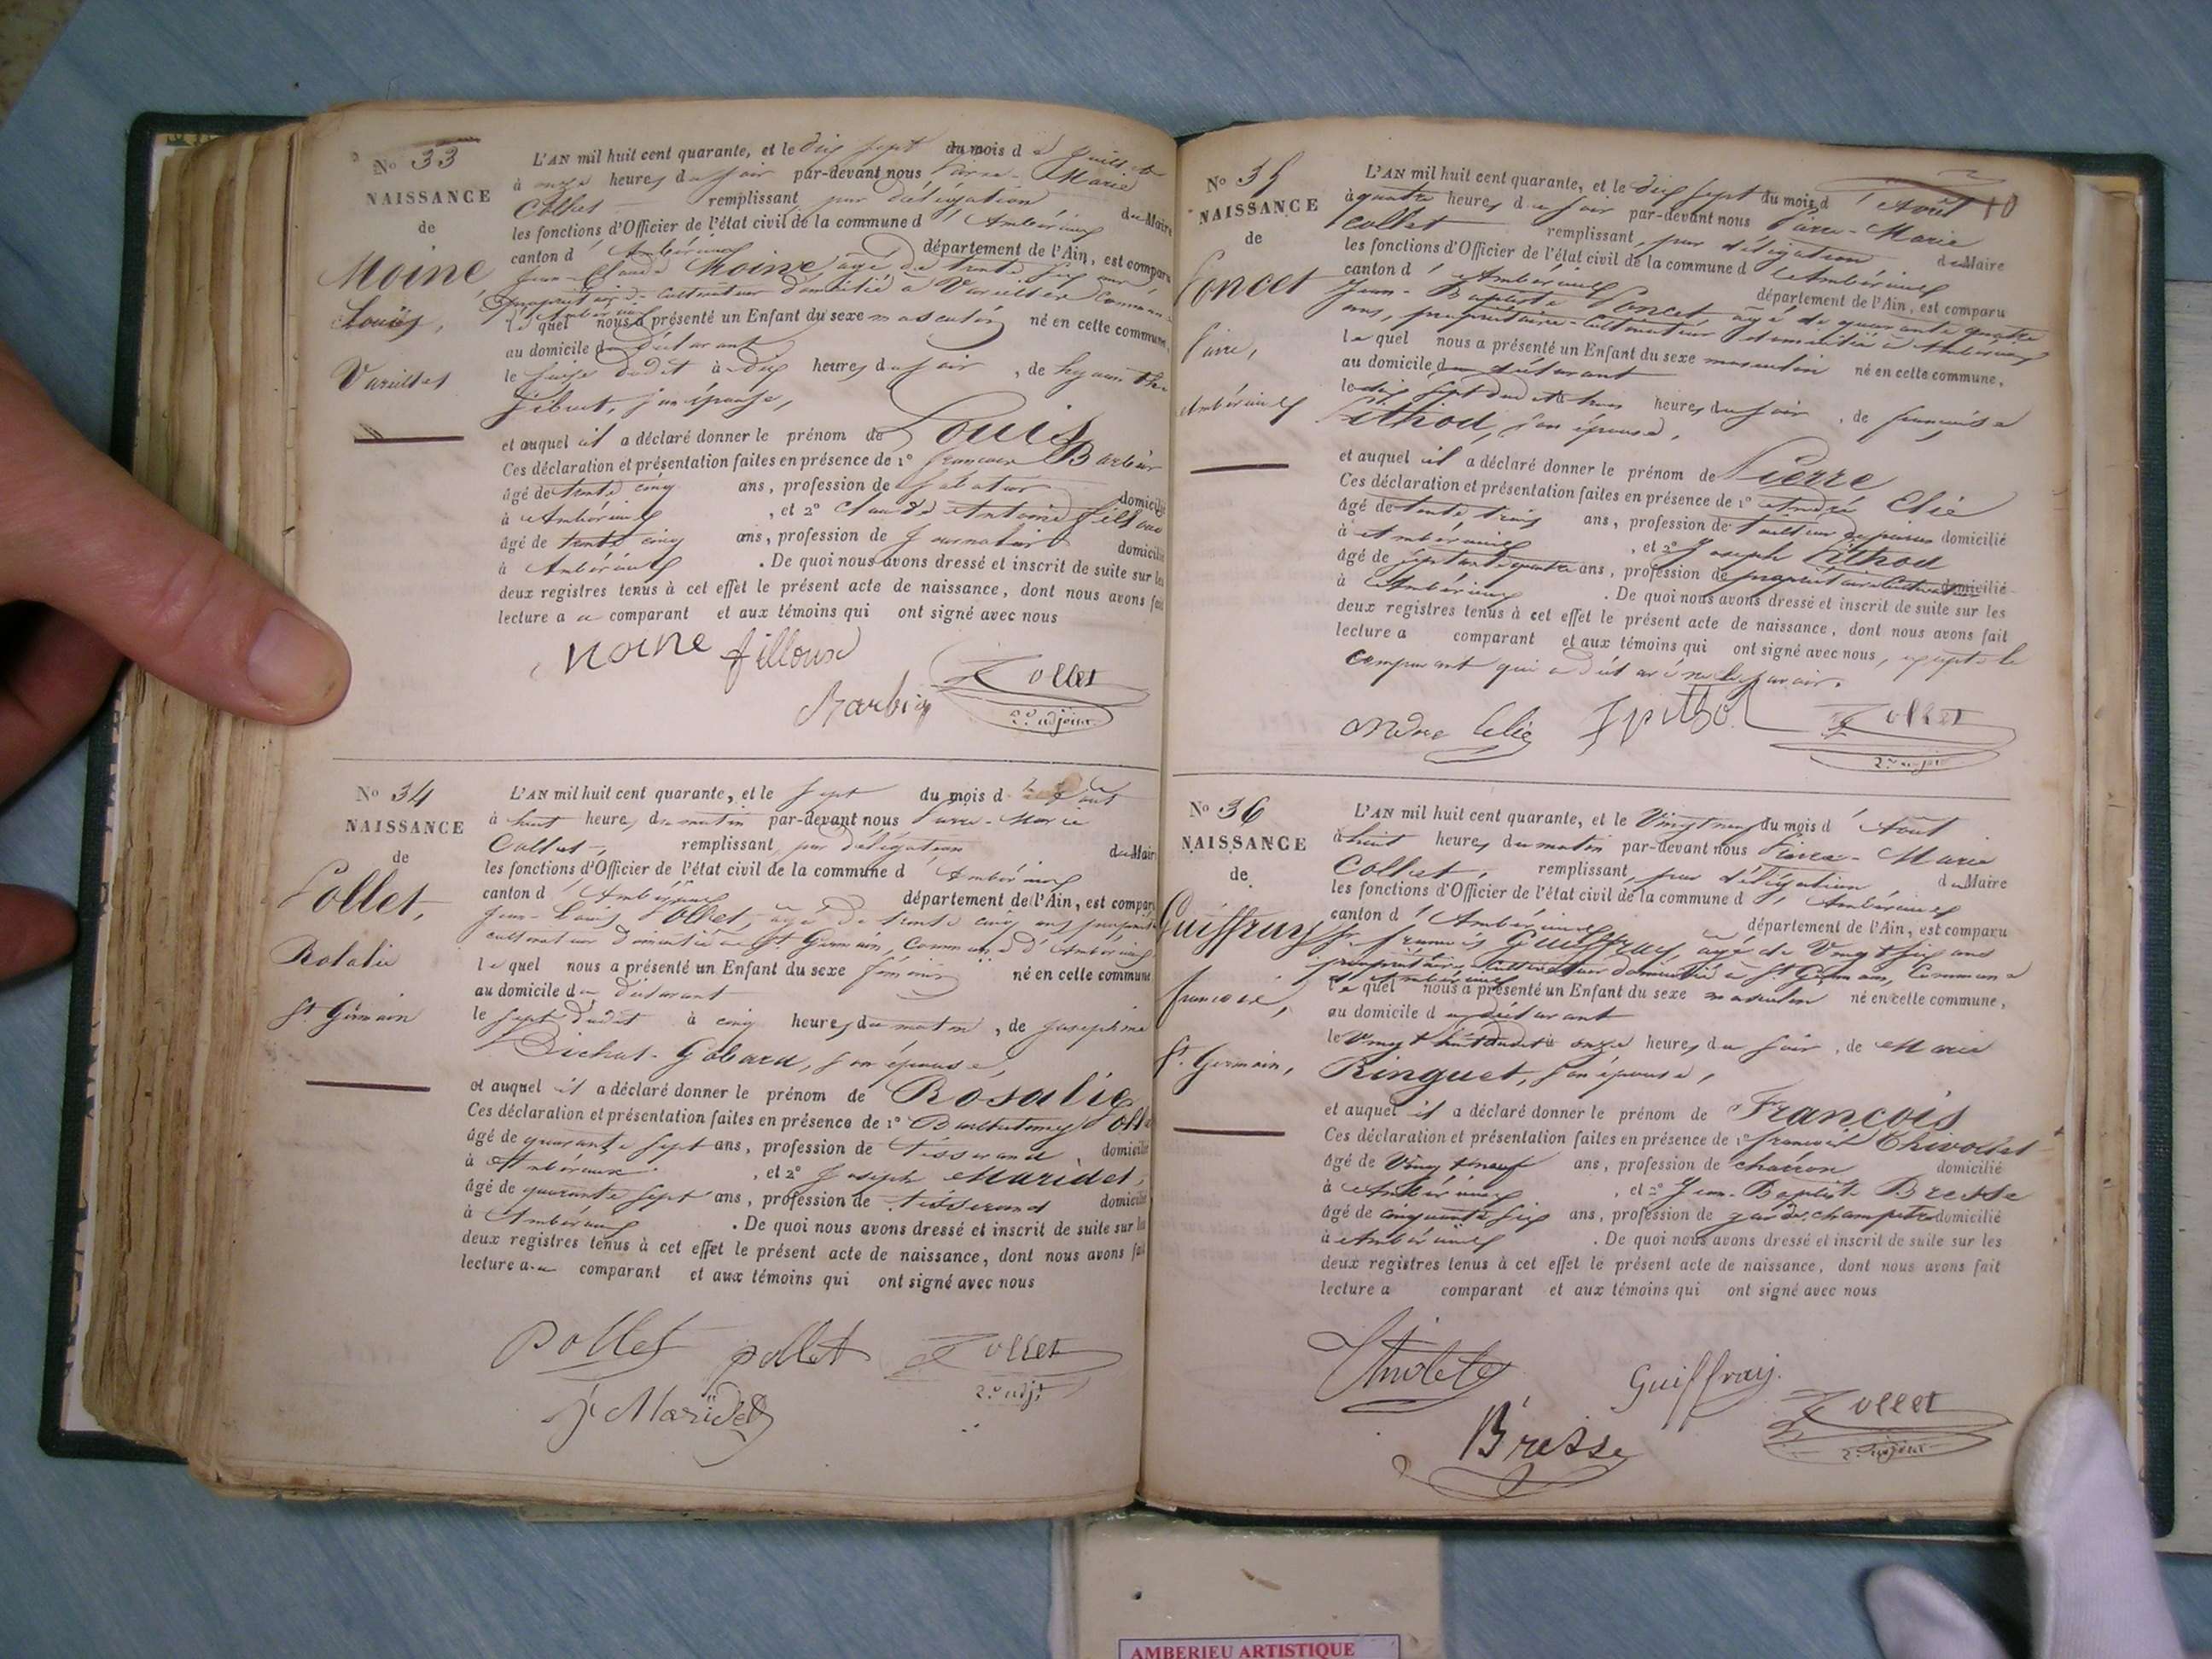 No 33
NAISSANCE
de
Moine,
Louis,
Vareilles
L'AN mil huit cent quarante, et le dix sept du mois de Juillet
à onze heures du soir par-devant nous Pierre-Marie
Collet remplissant par délégation du Maire
les fonctions d'Officier de l'état civil de la commune d'Ambérieux
canton d'Ambérieux département de l'Ain, est comparu
Jean-Claude Moine âgé de trente six ans
propriétaire-cultivateur domicilié à Vareilles commune
d'Ambérieux
lequel nous a présenté un Enfant du sexe masculin né en cette commune,
au domicile du déclarant
le seize dudit à dix heures du soir, de hyacinthe
Sibuet, son épouse,
et auquel il a déclaré donner le prénom de Louis
Ces déclaration et présentation faites en présence de 1° francois Barbier
âgé de trente cinq ans, profession de domicilié
à Ambérieux, et 2° Claude Antoine filloux
âgé de trente cinq ans, profession de Journalier domicilié
à Ambérieux. De quoi nous avons dressé et inscrit de suite sur les
deux registres tenus à cet effet le présent acte de naissance, dont nous avons fait
lecture au comparant et aux témoins qui ont signé avec nous
Moine filloux
Barbier Collet
2e adjoint
No 34
NAISSANCE
de
Pollet,
Rosalie
St Germain
L'AN mil huit cent quarante, et le sept du mois d'Aout
à huit heures du matin par-devant nous Pierre-Marie
Collet, remplissant par délégation du Maire
les fonctions d'Officier de l'état civil de la commune d'Ambérieux
canton d'Ambérieux département de l'Ain, est comparu
Jean-Louis Pollet, âgé de trente cinq ans propriétaire
cultivateur domicilié à St Germain, commune d'Ambérieux
lequel nous a présenté un Enfant du sexe féminin né en cette commune
au domicile du déclarant
le sept dudit à cinq heures du matin, de Josephine
Bichat-Gobard, son épouse,
et auquel il a déclaré donner le prénom de Rosalie
Ces déclaration et présentation faites en présence de 1° Barthelemy Pollet
âgé de quarante sept ans, profession de tisserand, domicilié
à Ambérieux, et 2° Joseph Maridet,
âgé de quarante sept ans, profession de tisserand domicilié
à Ambérieux. De quoi nous avons dressé et inscrit de suite sur les
deux registres tenus à cet effet le présent acte de naissance, dont nous avons fait
lecture au comparant et aux témoins qui ont signé avec nous
Pollet pollet Collet
2e adjt
J Maridet
10
No 35
NAISSANCE
de
Poncet
Pierre,
Ambérieux
L'AN mil huit cent quarante, et le dix sept du mois d'Août
à quatre heures du soir par-devant nous Pierre-Marie
Collet remplissant, par délégation du Maire
les fonctions d'Officier de l'état civil de la commune d'Ambérieux
canton d'Ambérieux département de l'Ain, est comparu
Jean-Baptiste Poncet âgé de quarante quatre
ans, propriétaire-Cultivateur domicilié à Ambérieux
lequel nous a présenté un Enfant du sexe masculin né en cette commune,
au domicile du déclarant
le dix sept dudit à trois heures du soir, de françoise
Pithod, son épouse,
et auquel il a déclaré donner le prénom de Pierre
Ces déclaration et présentation faites en présence de 1° André Elie
âgé de trente trois ans, profession de tailleur de pierres domicilié
à Ambérieux, et 2° Joseph Pithod
âgé de septante quatre ans, profession de propriétaire cultivateur domicilié
à Ambérieux. De quoi nous avons dressé et inscrit de suite sur les
deux registres tenus à cet effet le présent acte de naissance, dont nous avons fait
lecture a comparant et aux témoins qui ont signé avec nous, excepté le
comparant qui a déclaré ne le savoir.
andre Elie J pithod Collet
2e adjt
No 36
NAISSANCE
de
Guiffray
francois,
St Germain,
L'AN mil huit cent quarante, et le Vingt neuf du mois d'Août
à huit heures du matin par-devant nous Pierre-Marie
Collet, remplissant, par délégation, du Maire
les fonctions d'Officier de l'état civil de la commune d'Ambérieux
canton d'Ambérieux département de l'Ain, est comparu
francois Guiffray âgé de Vingt six ans
propriétaire-Cultivateur domicilié à St Germain, Commune
d'Ambérieux
lequel nous a présenté un Enfant du sexe masculin né en cette commune,
au domicile du déclarant
le Vingt huit dudit à onze heures du soir, de Marie
Ringuet, son épouse,
et auquel il a déclaré donner le prénom de François
Ces déclaration et présentation faites en présence de 1° francois Chivollet
âgé de Vingt neuf ans, profession de charron domicilié
à Ambérieux, et 2° Jean-Baptiste Bresse
âgé de cinquante six ans, profession de garde champêtre domicilié
à Ambérieux. De quoi nous avons dressé et inscrit de suite sur les
deux registres tenus à cet effet le présent acte de naissance, dont nous avons fait
lecture a comparant et aux témoins qui ont signé avec nous
Guiffray
Bresse Collet
2e adjoint
AMBERIEU ARTISTIQUE